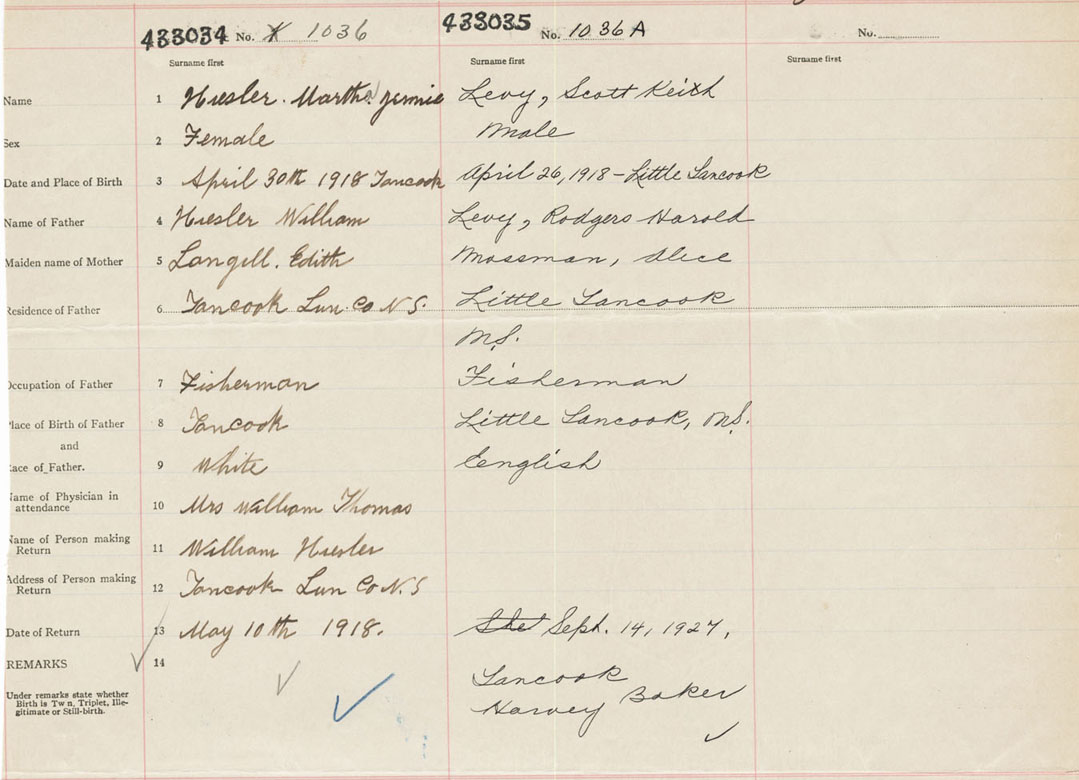 433034 No. 1036 433035 No. 1036 A No.
Surname first Surname first Surname first
Name 1 Hiesler. Martha Jennie Levy, Scott Keith
Sex 2 Female Male
Date and Place of Birth 3 April 30th 1918 Tancook April 26, 1918 - Little Tancook
Name of Father 4 Hiesler William Levy, Rodgers Harold
Maiden name of Mother 5 Langill. Edith Mossman, Alice
Residence of Father 6 Tancook Lun. Co N.S. Little Tancook
N.S.
Occupation of Father 7 Fisherman Fisherman
Place of Birth of Father 8 Tancook Little Tancook, N.S.
and
Race of Father. 9 White English
Name of Physician in
attendance 10 Mrs William Thomas
Name of Person making
Return 11 William Hiesler
Address of Person making
Return 12 Tancook Lun Co N.S
Date of Return 13 May 10th 1918. Sept. 14, 1927,
REMARKS 14
Tancook
Under remarks state whether
Birth is Tw n, Triplet, Ille-
gitimate or Still-birth.
Harvey Baker